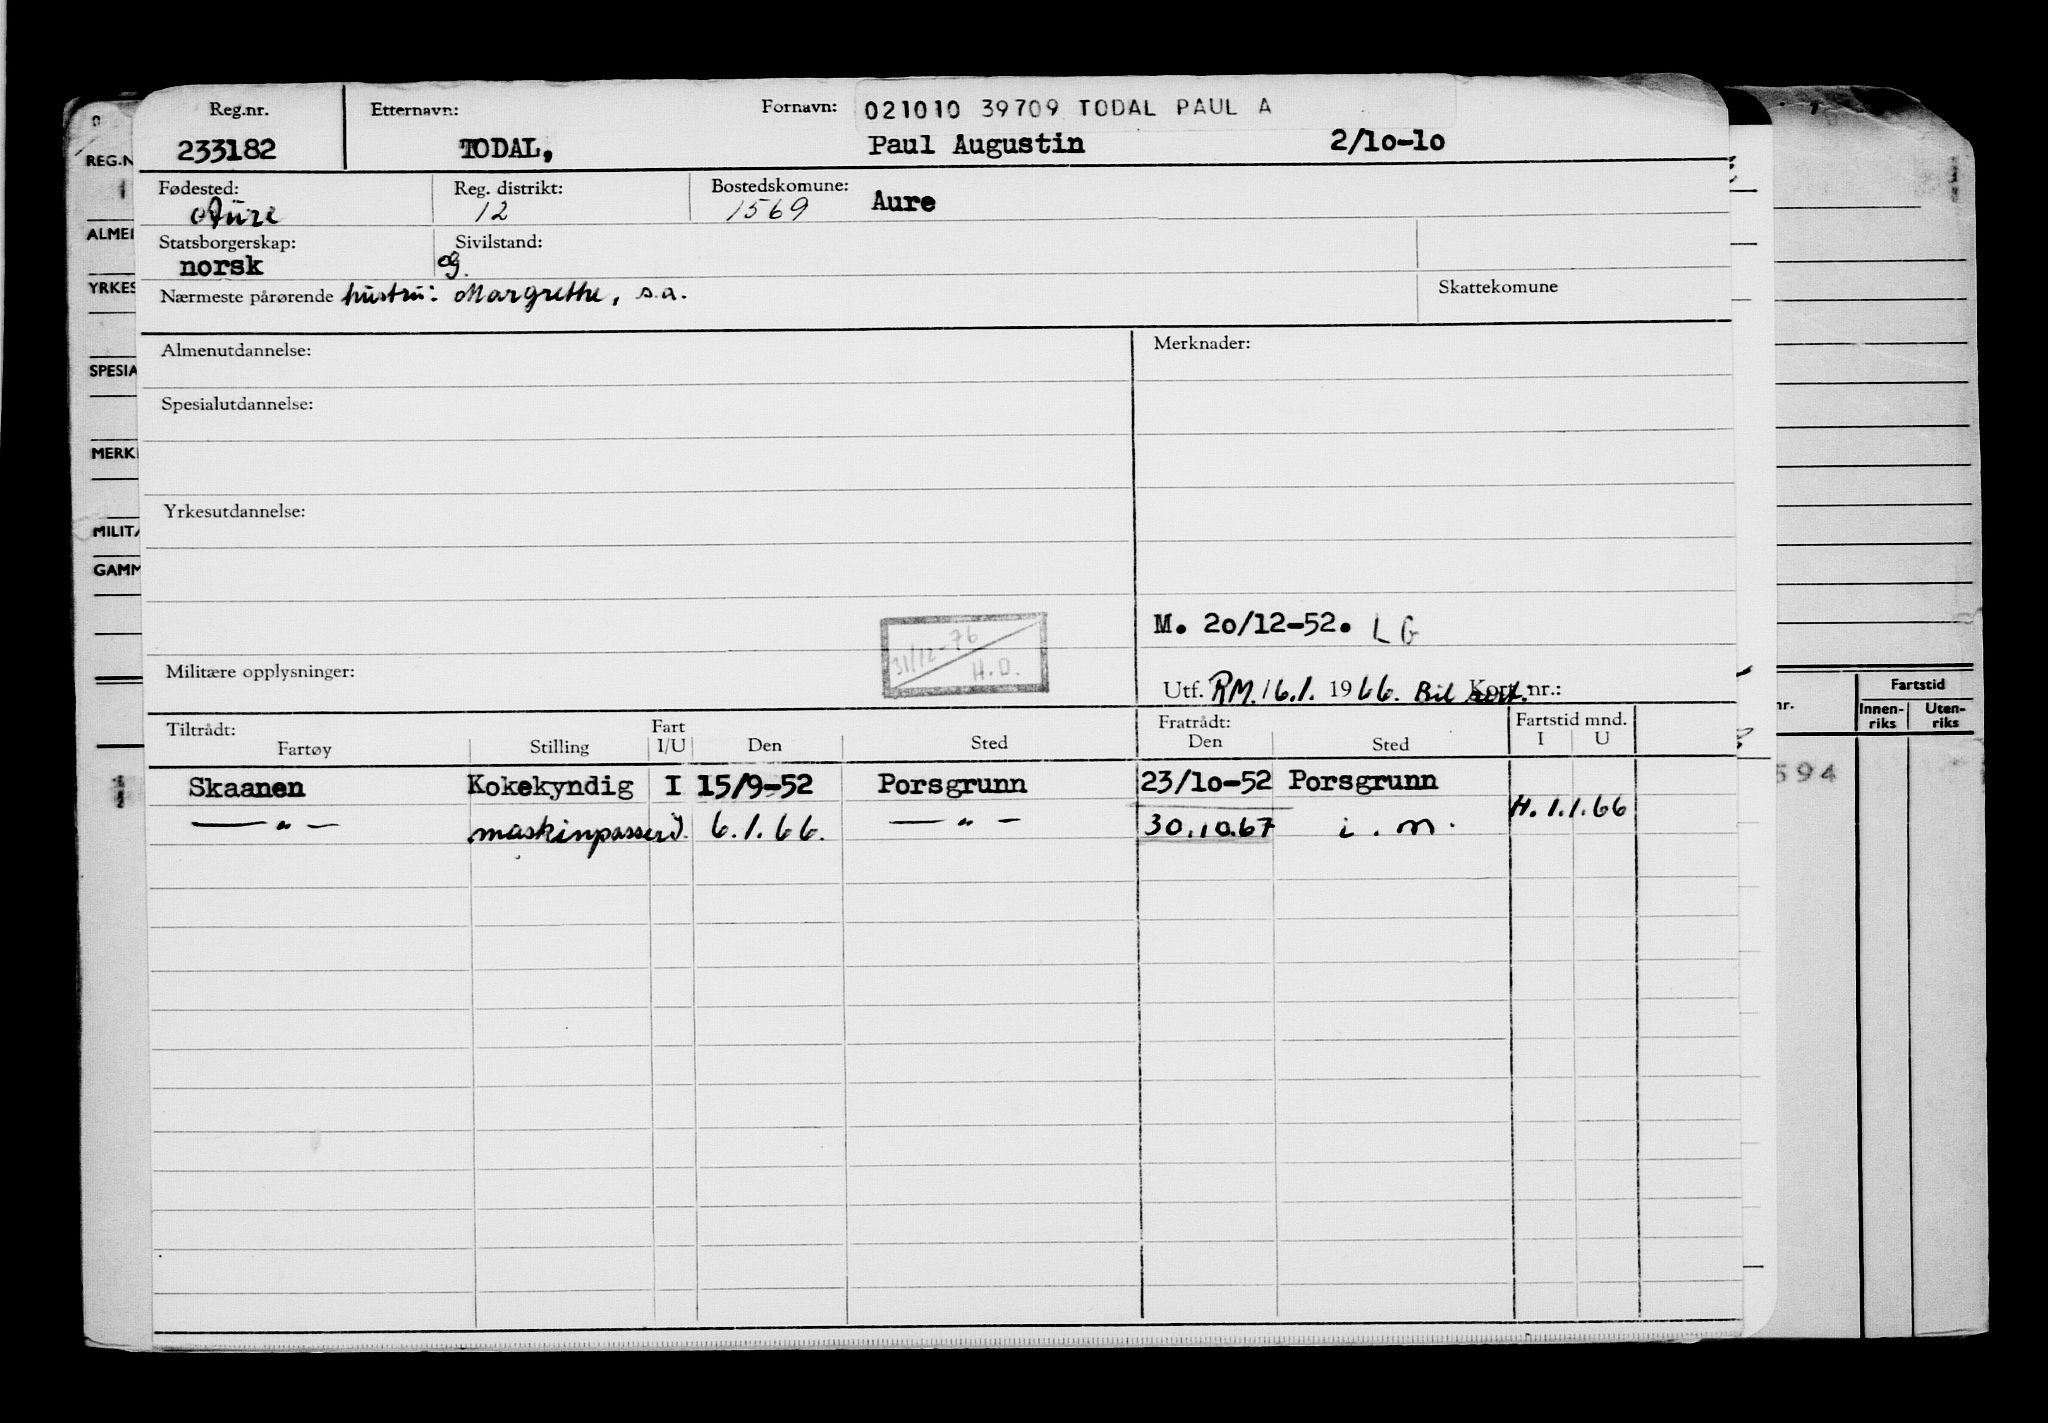 Reg.nr. Etternavn: Fornavn: 021010 39709 TODAL PAUL A
233182 TODAL, Paul Augustin 2/10-10
REG.N
Fødested: Reg. distrikt: Bostedskomune:
Aure 12 1569 Aure
ALMEI
Statsborgerskap: Sivilstand:
norsk g.
YRKES
Nærmeste pårørende hustru: Margrethe, s.a. Skattekomune
Almenutdannelse: Merknader:
SPESIA
Spesialutdannelse:
MERK
Yrkesutdannelse:
MILITA
GAMM
M. 20/12-52. L G
31/12-76
H.O.
Militære opplysninger:
Utf. RM. 16.1. 1966. Bil Kort nr.:
Fartstid
nr. Innen-riks Uten-riks
Tiltrådt: Fart Fratrådt: Fartstid mnd.
Fartøy Stilling I/U Den Sted Den Sted I U
Skaanen Kokekyndig I 15/9-52 Porsgrunn 23/10-52 Porsgrunn
594
H. 1.1.66
— " — maskinpasser 6.1.66. — " — 30.10.67 i. m.